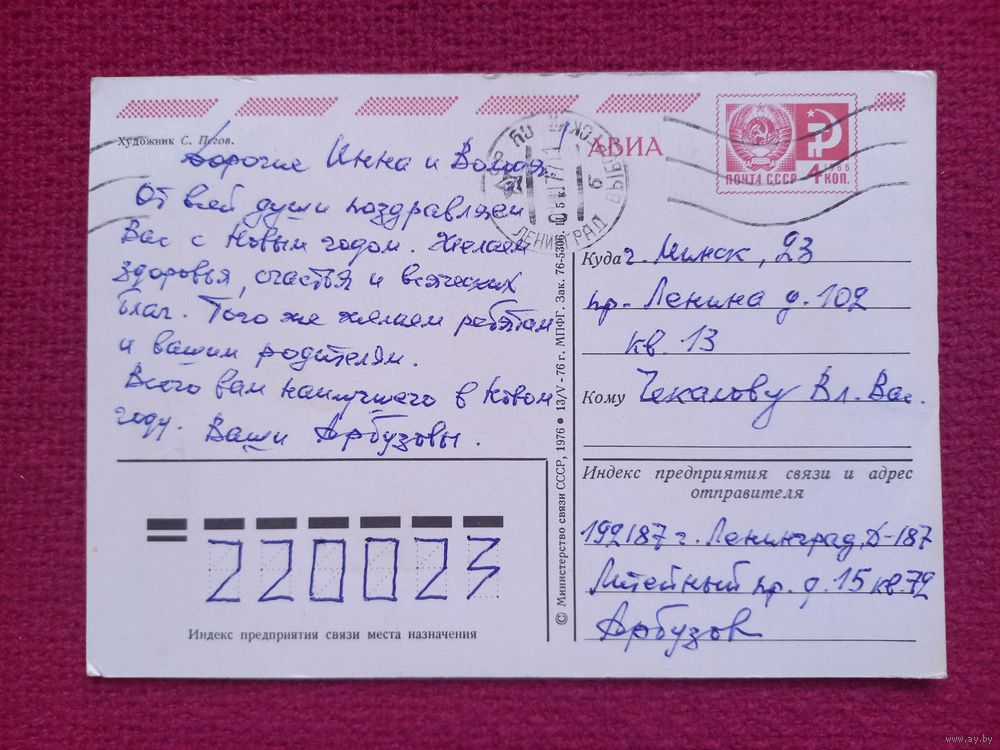 Художник С. Пегов.
АВИА
ПОЧТА СССР
1966
4 КОП.
ЛЕНИНГРАД
Дорогие Инна и Володя
От всей души поздравляем
Вас с Новым годом. Желаем
здоровья, счастья и всяческих
благ. Того же желаем ребятам
и вашим родителям.
Всего вам наилучшего в Новом
году. Ваши Арбузовы.
Куда г. Минск, 23
пр. Ленина д. 102
кв. 13
Кому Чекалову Вл. Вас.
Индекс предприятия связи и адрес
отправителя
192187 г. Ленинград, Д-187
Литейный пр. д. 15 кв. 72
Арбузов
220023
Индекс предприятия связи места назначения
© Министерство связи СССР, 1976 • 13/V - 76 г. МПФГ. Зак. 76-5306. Ц. 5 к.
www.ay.by